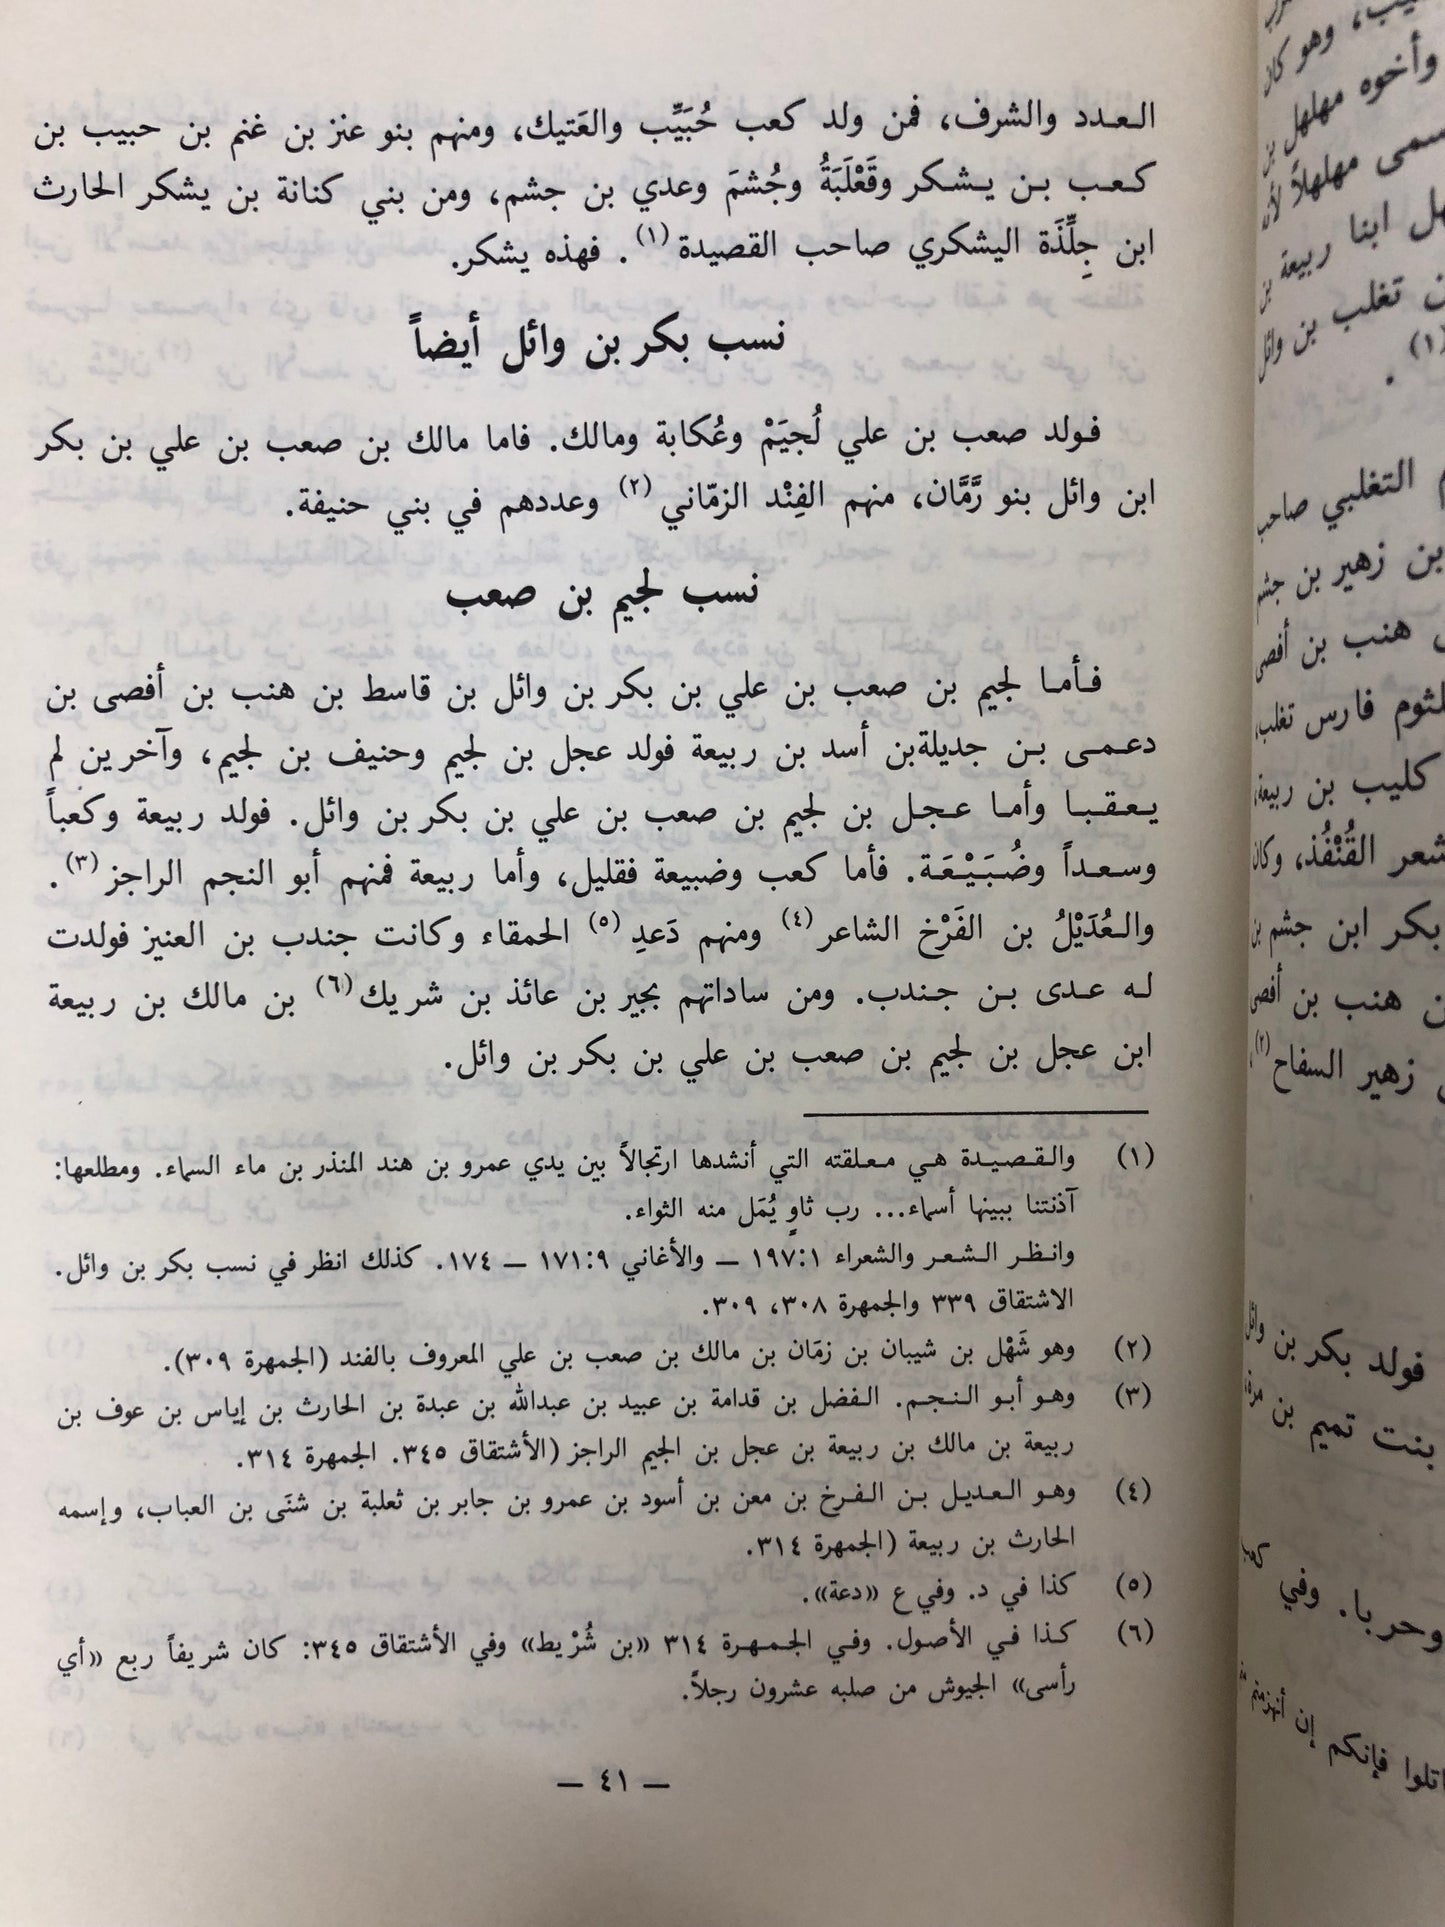 العدد والشرف، فمن ولد كعب حُبَيِّب والعَتيك، ومنهم بنو عنز بن غنم بن حبيب بن
كعب بن يشكر وقَعْلَبَةُ وجُشمَ وعدي بن جشم، ومن بني كنانة بن يشكر الحارث
ابن جِلِّذَة اليشكري صاحب القصيدة (١). فهذه يشكر.
نسب بكر بن وائل أيضاً
فولد صعب بن علي لُجيَمْ وعُكابة ومالك. فاما مالك بن صعب بن علي بن بكر
ابن وائل بنو رَّمَّان، منهم الفِنْد الزمّاني (٢) وعددهم في بني حنيفة.
نسب لجيم بن صعب
فأما لجيم بن صعب بن علي بن بكر بن وائل بن قاسط بن هنب بن أفصى بن
دعمى بن جديلةبن أسد بن ربيعة فولد عجل بن لجيم وحنيف بن لجيم، وآخرين لم
يعقبا وأما عجل بن لجيم بن صعب بن علي بن بكر بن وائل. فولد ربيعة وكعباً
وسعداً وضُبَيْعَة. فأما كعب وضبيعة فقليل، وأما ربيعة فمنهم أبو النجم الراجز (٣).
والعُدَيْلُ بن الفَرْخ الشاعر (٤) ومنهم دَعدِ (٥) الحمقاء وكانت جندب بن العنيز فولدت
له عدى بن جندب. ومن ساداتهم بجير بن عائذ بن شريك (٦) بن مالك بن ربيعة
ابن عجل بن لجيم بن صعب بن علي بن بكر بن وائل.
(١) والقصيدة هي معلقته التي أنشدها ارتجالاً بين يدي عمرو بن هند المنذر بن ماء السماء. ومطلعها:
آذنتنا ببينها أسماء... رب ثاوٍ يُمَل منه الثواء.
وانظر الشعر والشعراء ١:١٩٧ — والأغاني ٩:١٧١ — ١٧٤. كذلك انظر في نسب بكر بن وائل.
الاشتقاق ٣٣٩ والجمهرة ٣٠٨، ٣٠٩.
(٢) وهو شَهْل بن شيبان بن زمَان بن مالك بن صعب بن علي المعروف بالفند (الجمهرة ٣٠٩).
(٣) وهو أبو النجم. الفضل بن قدامة بن عبيد بن عبدالله بن عبدة بن الحارث بن إياس بن عوف بن
ربيعة بن مالك بن ربيعة بن عجل بن الجيم الراجز (الأشتقاق ٣٤٥. الجمهرة ٣١٤.
(٤) وهو العديل بن الفرخ بن معن بن أسود بن عمرو بن جابر بن ثعلبة بن شنَى بن العباب، وإسمه
الحارث بن ربيعة (الجمهرة ٣١٤.
(٥) كذا في د. وفي ع «دعة».
(٦) كذا في الأصول. وفي الجمهرة ٣١٤ «بن شُرْيط» وفي الأشتقاق ٣٤٥: كان شريفاً ربع «أي
رأسى» الجيوش من صلبه عشرون رجلاً.
— ٤١ —
وهو كان
وأخوه مهلهل بن
مهلهلاً لأنه
ابنا ربيعة بن
تغلب بن وائل
(١).
التغلبي صاحب
بن زهير بن جشم
هنب بن أفصى
فارس تغلب،
كليب بن ربيعة،
شعر القُنْفُذ، وكان
بكر ابن جشم بن
هنب بن أفصى
زهير السفاح (٢).
فولد بكر بن وائل
بنت تميم بن مرة،
وحربا. وفي كعب
فإنكم إن أنهزمتم